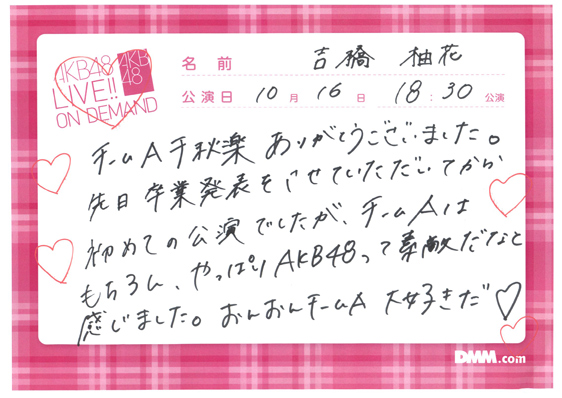 AKB48
LIVE!!
ON DEMAND
AKB
48
名前 吉橋 柚花
公演日 10月 16日 18:30 公演
チームA千秋楽 ありがとうございました。
先日 卒業発表をさせていただいてから
初めての公演でしたが、チームAは
もちろん、やっぱりAKB48って素敵だなと
感じました。おんおんチームA 大好きだ♡
DMM.com